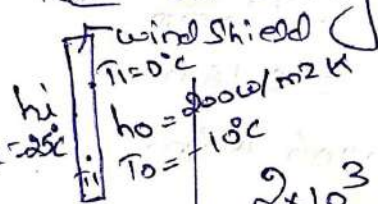 wind shield
T1=0°C
hi
ho = 200w/m2 K
=25°C
To = -10°C
Ti
2x10³